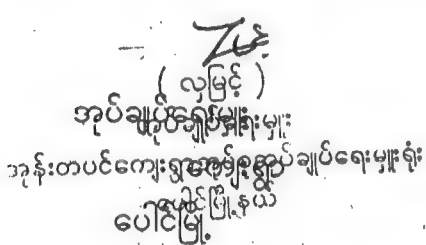 ( လှမြင့် )
အုပ်ချုပ်ရေးမှူး
အုန်းတပင်ကျေးရွာအုပ်စုအုပ်ချုပ်ရေးမှူးရုံး
ပေါင်မြို့နယ်
ပေါင်မြို့